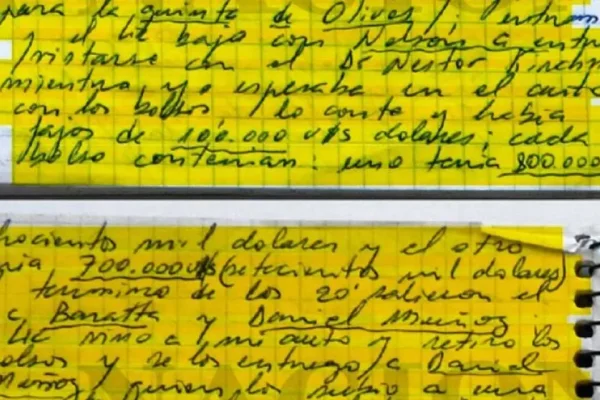 para la quinta de Olivos /. entran
y el Lic bajo con Nelson a entre
/vistarse con el Dr Nestor Kirchn
mientras yo esperaba en el auto
con los bolsos / lo conte y habia
fajos de 100.000 u$s dolares; cada
bolso contenian: uno tenia 800.000
hocientos mil dolares y el otro
nia 700.000 u$s (setecientos mil dolares)
termino de los 20' salieron el
c Baratta y Daniel Muñoz.
Lic vino a mi auto y retiro los
olsos y se los entrego / a Daniel
Muñoz / quien los subio a una